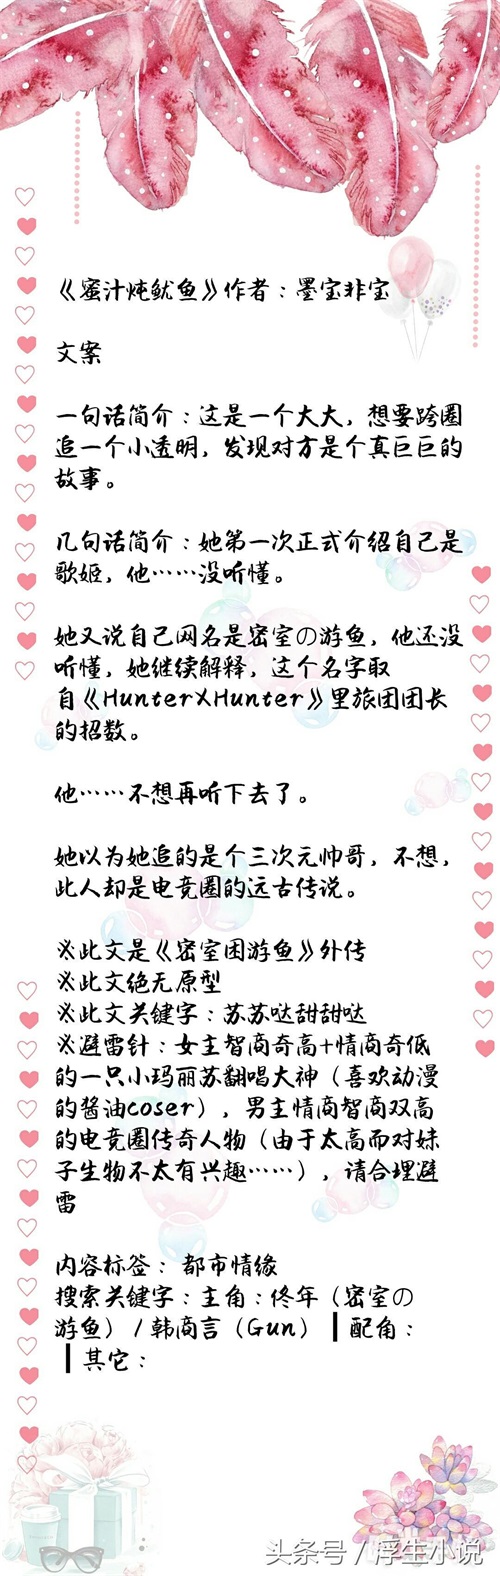 《蜜汁炖鱿鱼》作者：墨宝非宝
文案
一句话简介：这是一个大大，想要跨圈
追一个小透明，发现对方是个真巨巨的
故事。
几句话简介：她第一次正式介绍自己是
歌姬，他……没听懂。
她又说自己网名是密室の游鱼，他还没
听懂，她继续解释，这个名字取
自《HunterXHunter》里旅团团长
的招数。
他……不想再听下去了。
她以为她追的是个三次元帅哥，不想，
此人却是电竞圈的远古传说。
※此文是《密室困游鱼》外传
※此文绝无原型
※此文关键字：苏苏哒甜甜哒
※避雷针：女主智商奇高+情商奇低
的一只小玛丽苏翻唱大神（喜欢动漫
的酱油coser），男主情商智商双高
的电竞圈传奇人物（由于太高而对妹
子生物不太有兴趣……），请合理避
雷
内容标签： 都市情缘
搜索关键字：主角：佟年（密室の
游鱼）/韩商言（Gun） ┃ 配角：
┃ 其它：
头条号 / 浮生小说